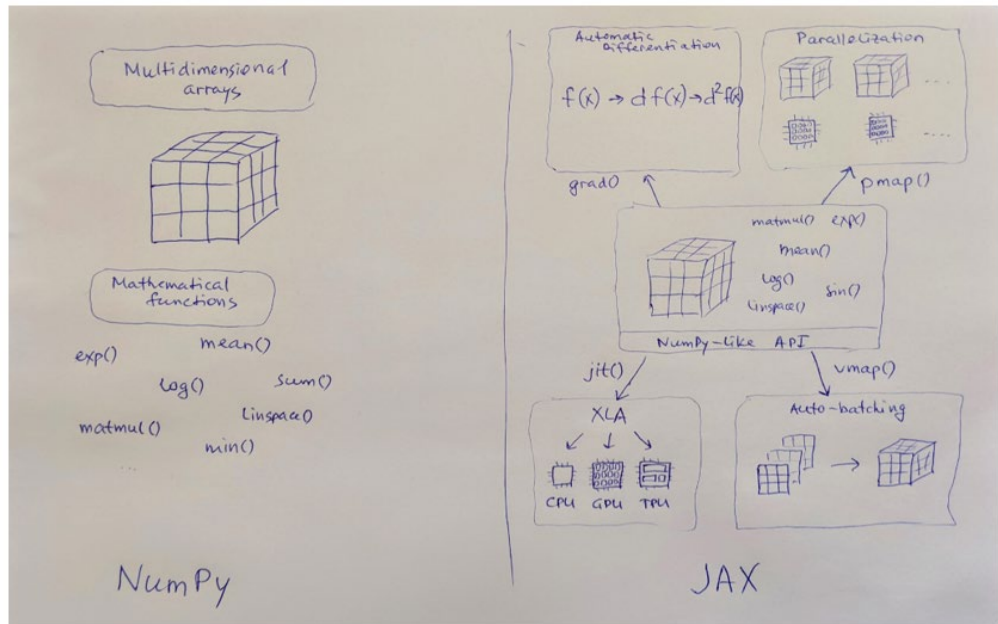 Multidimensional
arrays
Mathematical
functions
exp()
mean()
log()
sum()
linspace()
matmul()
min()
...
NumPy
Automatic
Differentiation
f(x) → df(x) → d²f(x)
grad()
Parallelization
....
....
pmap()
matmul() exp()
mean()
log()
sin()
linspace()
NumPy-like API
jit()
vmap()
XLA
CPU GPU TPU
Auto-batching
JAX